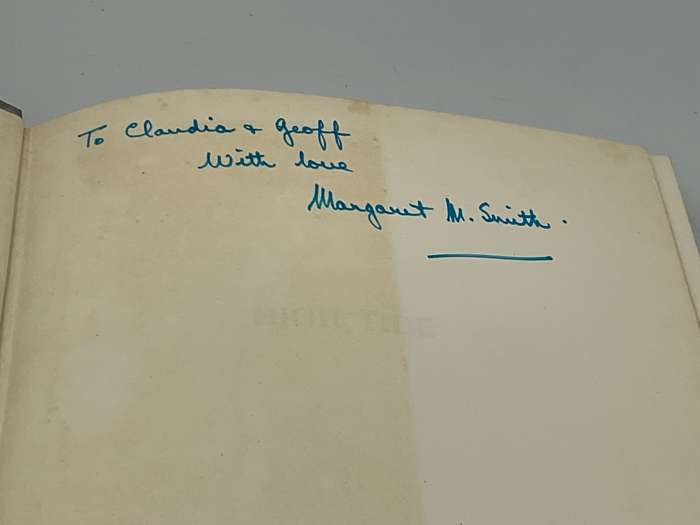 To Claudia & Geoff
With love
Margaret M. Smith.
HIGH TIDE